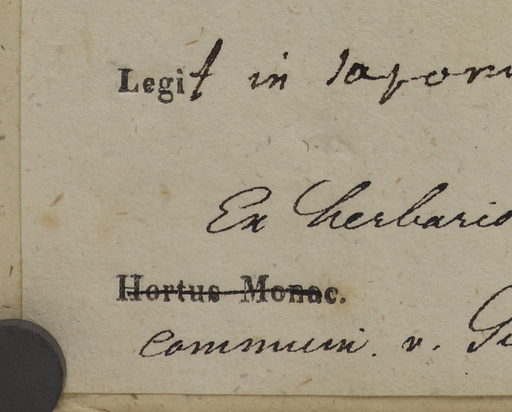 Legit in Japoni
Ex herbario
Hortus Monac.
communi. v.